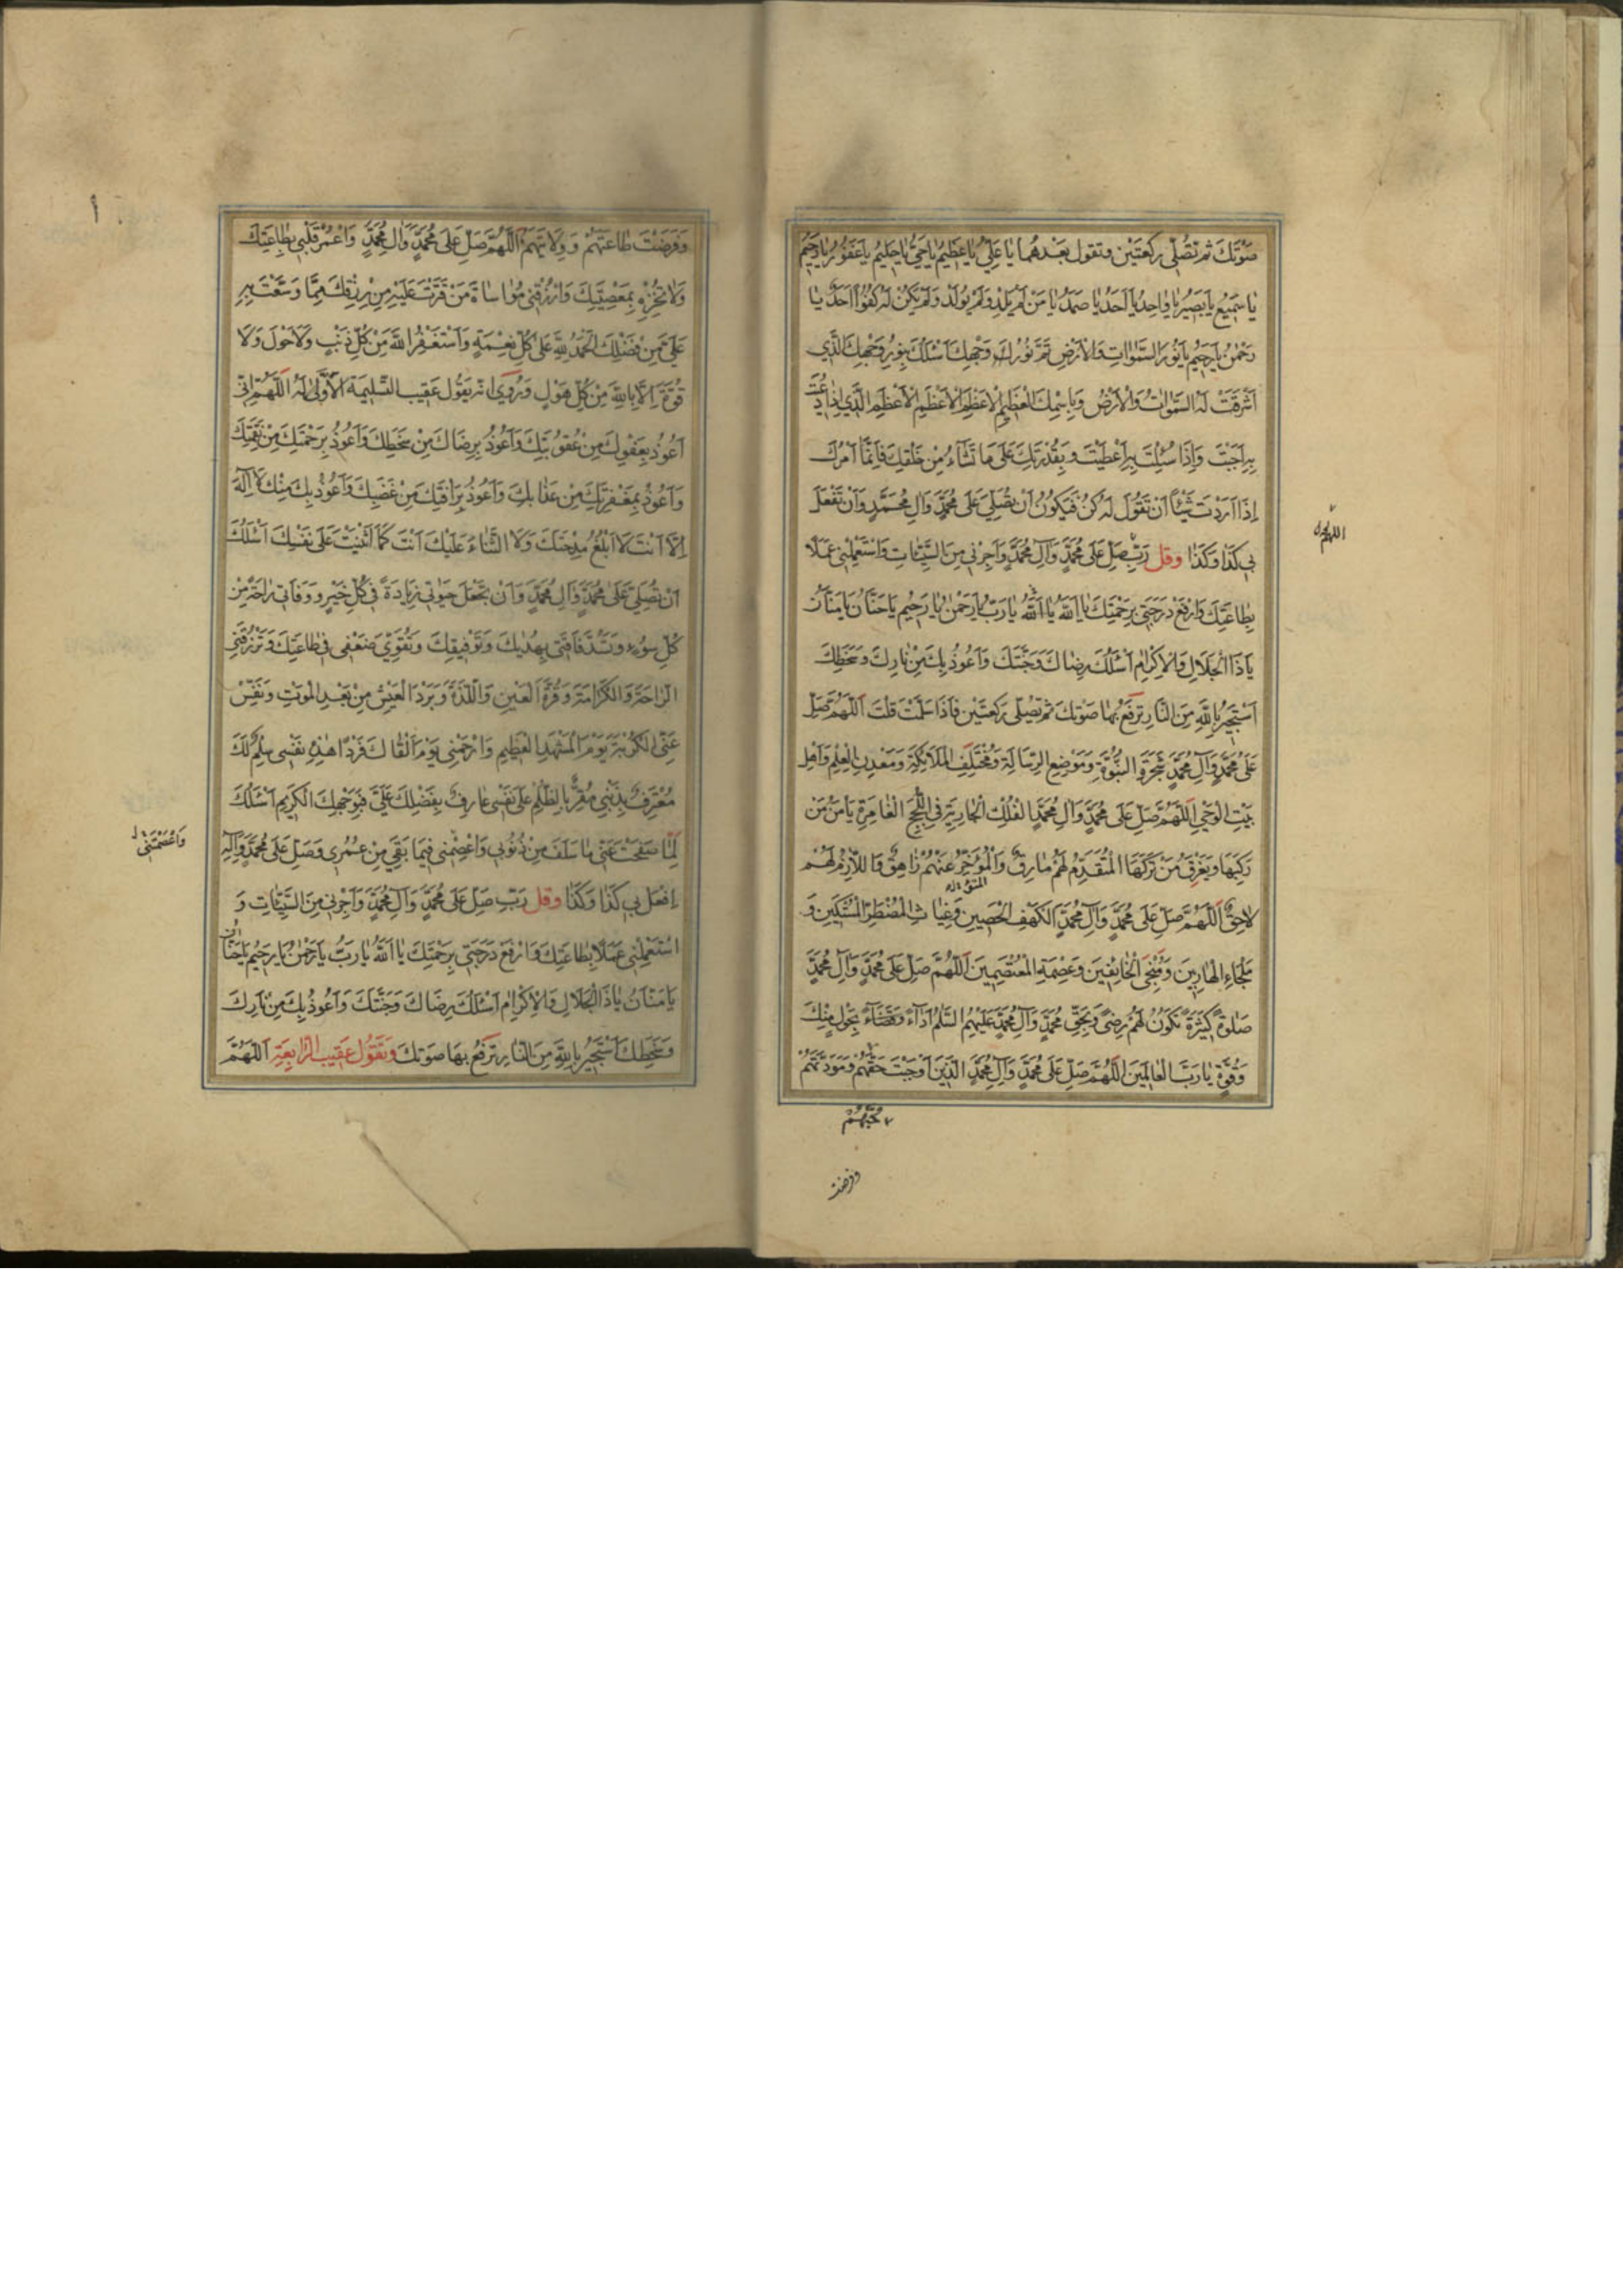 صَوْتَكَ ثم تُصَلّي ركعَتَيْن وتقول بَعْدهُما يا عَلِيُّ يا عَظِيمُ يا حَيُّ يا حَلِيمُ يا غَفُورُ يا رَحِيمُ
يا سَمِيعُ يا بَصِيرُ يا واحِدُ يا اَحَدُ يا صَمَدُ يا مَنْ لَمْ يَلِدْ وَلَمْ يُولَدْ وَلَمْ يَكُنْ لَهُ كُفُوًا اَحَدٌ يا
رَحْمٰنُ يا رَحِيمُ يا نُورَ السَّمٰواتِ وَالْاَرْضِ تَمَّ نُورُ وَجْهِكَ اَسْئَلُكَ بِنُورِ وَجْهِكَ الَّذي
اَشْرَقَتْ لَهُ السَّمٰواتُ وَالْاَرْضُ وَبِاسْمِكَ الْعَظِيمِ الْاَعْظَمِ الْاَعْظَمِ الْاَعْظَمِ الَّذي اِذا دُعِيتَ
بِهِ اَجَبْتَ وَاِذا سُئِلْتَ بِهِ اَعْطَيْتَ وَبِقُدْرَتِكَ عَلىٰ ما تَشاءُ مِنْ خَلْقِكَ فَاِنَّما اَمْرُكَ
اِذا اَرَدْتَ شَيْئًا اَنْ تَقُولَ لَهُ كُنْ فَيَكُونُ اَنْ تُصَلِّيَ عَلىٰ مُحَمَّدٍ وَآلِ مُحَمَّدٍ وَاَنْ تَفْعَلَ
بي كَذا وَكَذا وقل رَبِّ صَلِّ عَلىٰ مُحَمَّدٍ وَآلِ مُحَمَّدٍ وَاَجِرْني مِنَ السَّيِّئاتِ وَاسْتَعْمِلْني عَمَلًا
بِطاعَتِكَ وَارْفَعْ دَرَجَتي بِرَحْمَتِكَ يا اَللّٰهُ يا اَللّٰهُ يا رَبُّ يا رَحْمٰنُ يا رَحِيمُ يا حَنّانُ يا مَنّانُ
يا ذَا الْجَلالِ وَالْاِكْرامِ اَسْئَلُكَ رِضاكَ وَجَنَّتَكَ وَاَعُوذُ بِكَ مِنْ نارِكَ وَسَخَطِكَ
اَسْتَجِيرُ بِاللّٰهِ مِنَ النّارِ تَرْفَعُ بِها صَوتَكَ ثم تُصَلّي رَكعَتَيْن فَاذا سَلَّمْتَ قلتَ اَللّٰهُمَّ صَلِّ
عَلىٰ مُحَمَّدٍ وَآلِ مُحَمَّدٍ شَجَرَةِ النُّبُوَّةِ وَمَوْضِعِ الرِّسالَةِ وَمُخْتَلَفِ الْمَلائِكَةِ وَمَعْدِنِ الْعِلْمِ وَاَهْلِ
بَيْتِ الْوَحْيِ اَللّٰهُمَّ صَلِّ عَلىٰ مُحَمَّدٍ وَآلِ مُحَمَّدٍ الْفُلْكِ الْجارِيَةِ فِي اللُّجَجِ الْغامِرَةِ يَأْمَنُ مَنْ
رَكِبَها وَيَغْرَقُ مَنْ تَرَكَهَا الْمُتَقَدِّمُ لَهُمْ مارِقٌ وَالْمُؤَخِّرُ عَنْهُمْ زاهِقٌ وَاللّازِمُ لَهُمْ
لاحِقٌ اَللّٰهُمَّ صَلِّ عَلىٰ مُحَمَّدٍ وَآلِ مُحَمَّدٍ الْكَهْفِ الْحَصِينِ وَغِياثِ الْمُضْطَرِّ الْمُسْتَكِينِ وَ
مَلْجَاءِ الْهارِبِينَ وَمُنْجِي الْخائِفِينَ وَعِصْمَةِ الْمُعْتَصِمِينَ اَللّٰهُمَّ صَلِّ عَلىٰ مُحَمَّدٍ وَآلِ مُحَمَّدٍ
صَلوٰةً كَثِيرَةً تَكُونُ لَهُمْ رِضىً وَبِحَقِّ مُحَمَّدٍ وَآلِ مُحَمَّدٍ عَلَيْهِمُ السَّلٰمُ اَداءً وَقَضاءً بِحَوْلٍ مِنْكَ
وَقُوَّةٍ يا رَبَّ الْعالَمِينَ اَللّٰهُمَّ صَلِّ عَلىٰ مُحَمَّدٍ وَآلِ مُحَمَّدٍ الَّذِينَ اَوْجَبْتَ حَقَّهُمْ وَمَوَدَّتَهُمْ
مُحِبَّهُمْ
وفرضت
وَفَرَضْتَ طاعَتَهُمْ وَوِلايَتَهُمْ اَللّٰهُمَّ صَلِّ عَلىٰ مُحَمَّدٍ وَآلِ مُحَمَّدٍ وَاعْمُرْ قَلْبي بِطاعَتِكَ
وَلا تُخْزِهِ بِمَعْصِيَتِكَ وَارْزُقْني مُواساةَ مَنْ قَتَّرْتَ عَلَيْهِ مِنْ رِزْقِكَ مِمّا وَسَّعْتَ بِهِ
عَلَيَّ مِنْ فَضْلِكَ اَلْحَمْدُ لِلّٰهِ عَلىٰ كُلِّ نِعْمَةٍ وَاَسْتَغْفِرُ اللّٰهَ مِنْ كُلِّ ذَنْبٍ وَلا حَوْلَ وَلا
قُوَّةَ اِلّا بِاللّٰهِ مِنْ كُلِّ هَوْلٍ وَرُوِيَ انه يَقُول عَقِيب التَّسْلِيمَة الْاُولىٰ لَهُ اَللّٰهُمَّ اِنّي
اَعُوذُ بِعَفْوِكَ مِنْ عُقُوبَتِكَ وَاَعُوذُ بِرِضاكَ مِنْ سَخَطِكَ وَاَعُوذُ بِرَحْمَتِكَ مِنْ نَقِمَتِكَ
وَاَعُوذُ بِمَغْفِرَتِكَ مِنْ عَذابِكَ وَاَعُوذُ بِرَأْفَتِكَ مِنْ غَضَبِكَ وَاَعُوذُ بِكَ مِنْكَ لا اِلٰهَ
اِلّا اَنْتَ لا اَبْلُغُ مِدْحَتَكَ وَلَا الثَّناءَ عَلَيْكَ اَنْتَ كَما اَثْنَيْتَ عَلىٰ نَفْسِكَ اَسْئَلُكَ
اَنْ تُصَلِّيَ عَلىٰ مُحَمَّدٍ وَآلِ مُحَمَّدٍ وَاَنْ تَجْعَلَ حَيٰوتي زِيادَةً في كُلِّ خَيْرٍ وَوَفاتي راحَةً مِنْ
كُلِّ سُوءٍ وَتَسُدَّ فاقَتي بِهُدٰيكَ وَتَوْفِيقِكَ وَتُقَوِّيَ ضَعْفي في طاعَتِكَ وَتَرْزُقَنِي
الرّاحَةَ وَالْكَرامَةَ وَقُرَّةَ الْعَيْنِ وَاللَّذَّةَ وَبَرْدَ الْعَيْشِ مِنْ بَعْدِ الْمَوْتِ وَنَفِّسْ
عَنِّي الْكُرْبَةَ يَوْمَ الْمَشْهَدِ الْعَظِيمِ وَارْحَمْني يَوْمَ اَلْقاكَ فَرْدًا هٰذِهِ نَفْسي سِلْمٌ لَكَ
مُعْتَرِفٌ بِذَنْبي مُقِرٌّ بِالظُّلْمِ عَلىٰ نَفْسي عارِفٌ بِفَضْلِكَ عَلَيَّ فَبِوَجْهِكَ الْكَرِيمِ اَسْئَلُكَ
لَمّا صَفَحْتَ عَنّي ما سَلَفَ مِنْ ذُنُوبي وَاعْصِمْني فِيما بَقِيَ مِنْ عُمُري وَصَلِّ عَلىٰ مُحَمَّدٍ وَآلِهِ
وَاَعْصَمْتَنِي
اِفْعَلْ بي كَذا وَكَذا وقل رَبِّ صَلِّ عَلىٰ مُحَمَّدٍ وَآلِ مُحَمَّدٍ وَاَجِرْني مِنَ السَّيِّئاتِ وَ
اسْتَعْمِلْني عَمَلًا بِطاعَتِكَ وَارْفَعْ دَرَجَتي بِرَحْمَتِكَ يا اَللّٰهُ يا رَبُّ يا رَحْمٰنُ يا رَحِيمُ يا حَنّانُ
يا مَنّانُ يا ذَا الْجَلالِ وَالْاِكْرامِ اَسْئَلُكَ رِضاكَ وَجَنَّتَكَ وَاَعُوذُ بِكَ مِنْ نارِكَ
وَسَخَطِكَ اَسْتَجِيرُ بِاللّٰهِ مِنَ النّارِ تَرْفَعُ بِها صَوتَكَ وَتَقُولُ عَقِيبَ الرّابِعَةِ اَللّٰهُمَّ